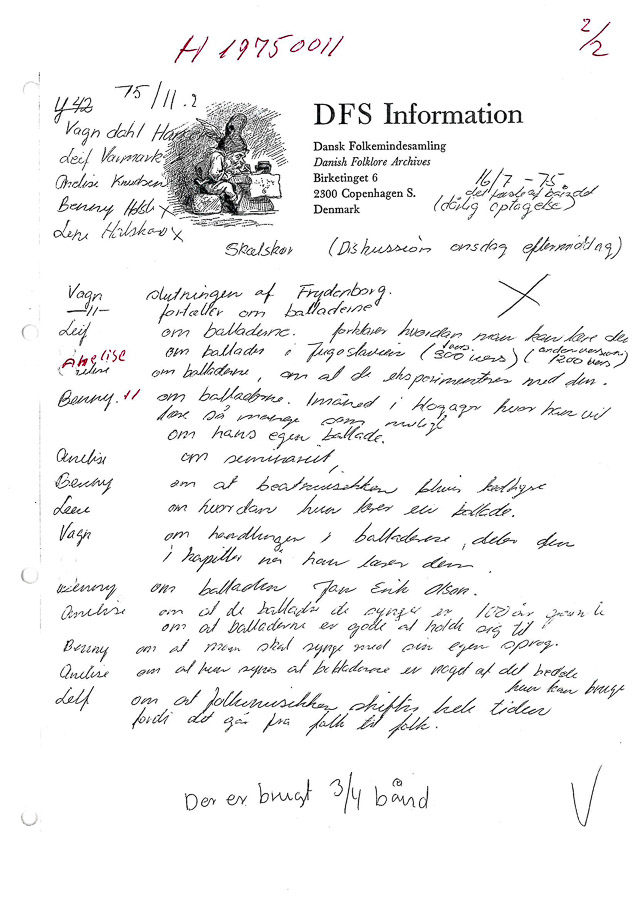 H 19750011
2/2
Y 42 75/11.2
Vagn dahl
Leif Varmark
Anelise Knudsen
Benny Holst x
Lene x
DFS Information
Dansk Folkemindesamling
Danish Folklore Archives
Birketinget 6
2300 Copenhagen S.
Denmark
16/7 - 75
det første af båndet
(dårlig optagelse)
Skælskør (Diskussion onsdag eftermiddag)
Vagn slutningen af Frydenborg.
-11- fortæller om balladerne
Leif om balladerne. forklarer hvordan man kan lære den
Anelise om ballader i Jugoslavien (300 vers) (anden version 1200 vers)
om balladerne, om at de eksperimenterer med den.
Benny. 11 om balladerne. hvor han vil
lære så mange som muligt
om hans egen ballade.
Anelise om seminariet,
Benny om at
Lene om hvordan hun lærer en ballade.
Vagn om handlingen i balladerne, deler den
i kapitler når han lærer dem.
Benny om balladen Jan Erik Olson.
Anelise om at de ballader de synger er 100 år
om at balladerne er gode at holde sig til
Benny om at man skal synge med sin egen sprog.
Anelise om at hun synes at balladerne er noget af det bedste
hun kan bruge
Leif om at folkemusikken skifter hele tiden
fordi det går fra folk til folk.
Der er brugt 3/4 bånd
V